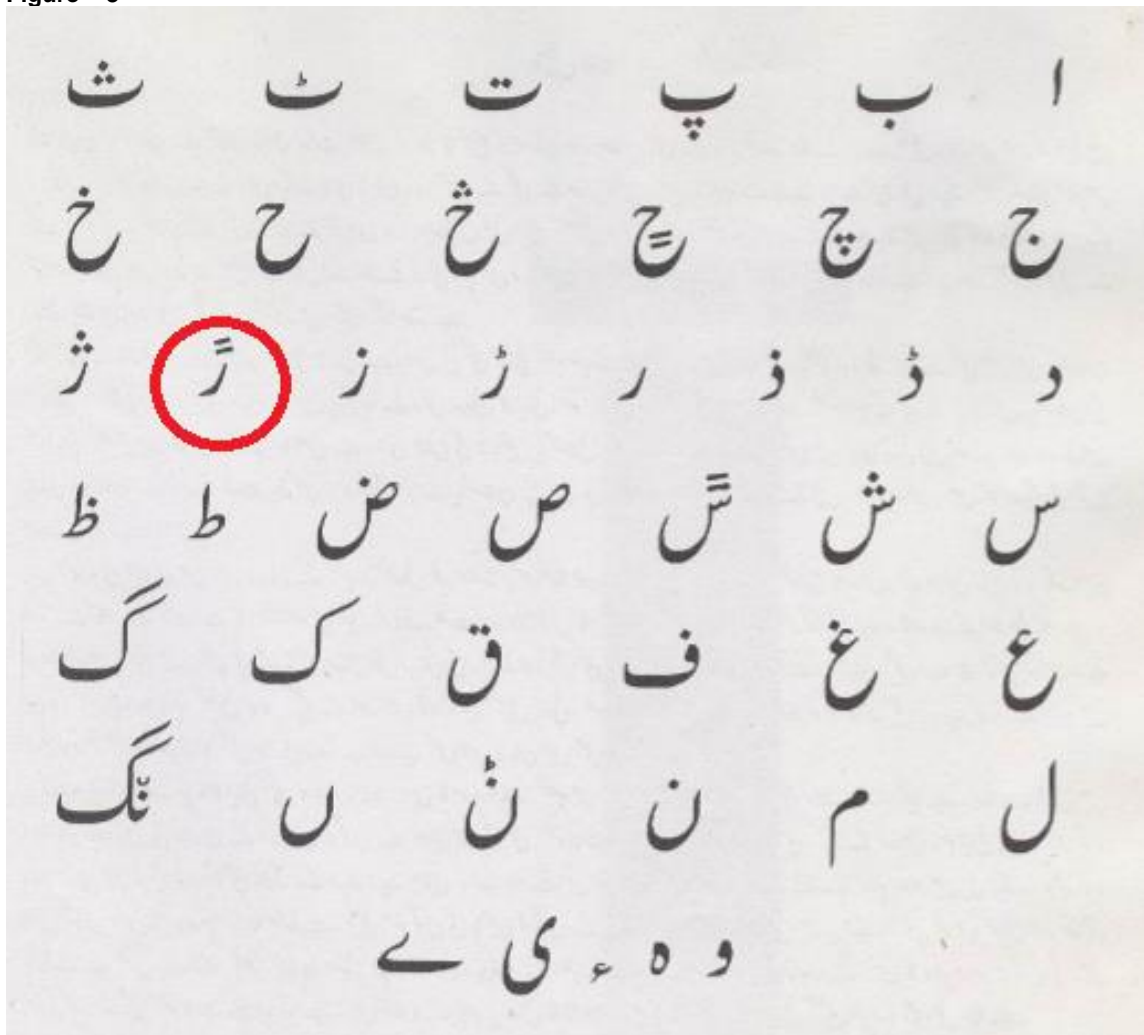 Figure
ا ب پ ت ٹ ث
ج چ حٍ څ ح خ
د ڈ ذ ر ڑ ز رً ژ
س ش سً ص ض ط ظ
ع غ ف ق ک گ
ل م ن ݨ ں نگ
و ہ ء ی ے